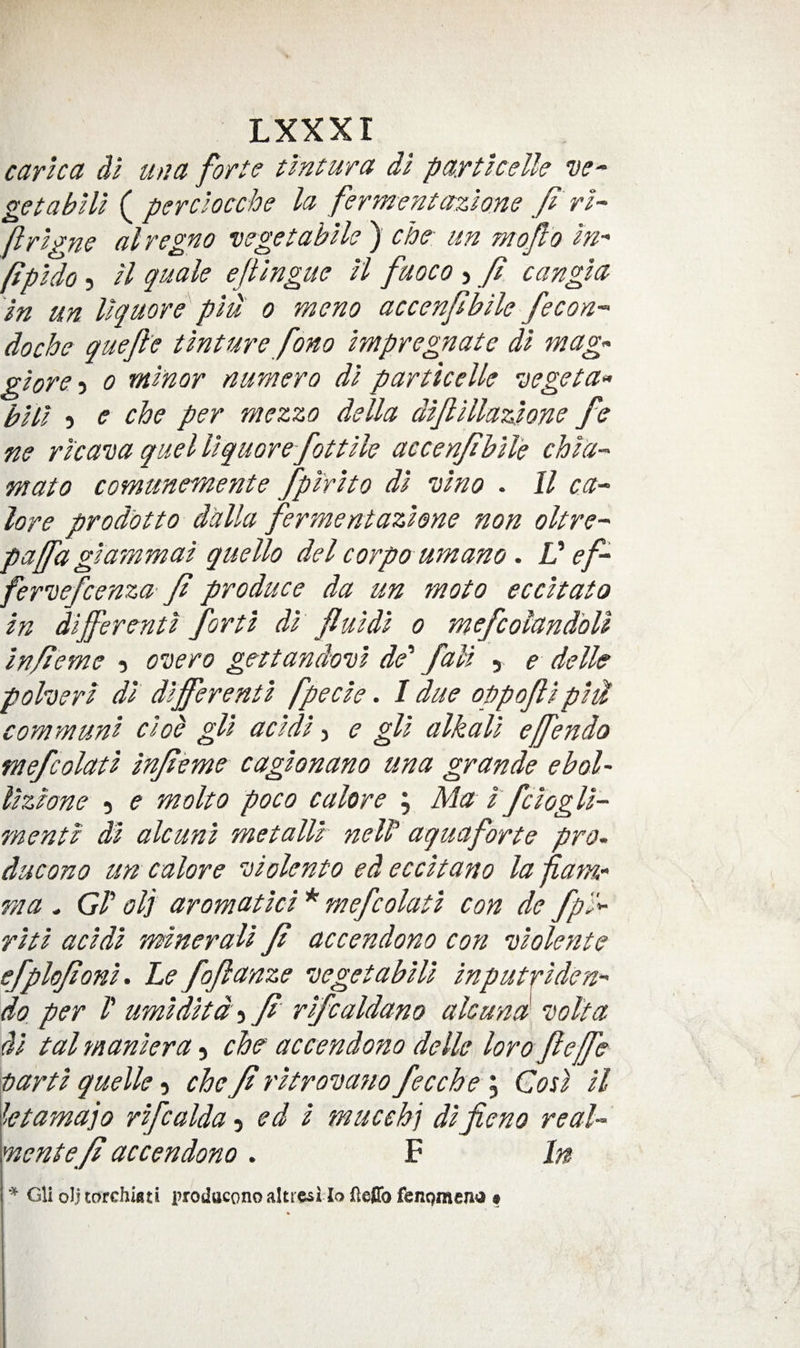 LXXXI
carica di una forte tintura di particelle ve-
getabili ( perciocche la fermentazione ſi ri-
ſtrigne al regno vegetabile ) che un moſto in-
ſipido , il quale eſtingue il fuoco , ſi cangia
in un liquore più o meno accenſibile ſecon-
doche queſte tinture ſono impregnate di mag-
giore , o minor numero di particelle vegeta-
bili , e che per mezzo della diſtillazione ſe
ne ricava quel liquore ſottile accenſibile chia-
mato comunemente ſpirito di vino . Il ca-
lore prodotto dalla fermentazione non oltre-
paſſa giammai quello del corpo umano . L' ef-
ferveſcenza ſi produce da un moto eccitato
in differenti ſorti di fluidi o meſcolandoli
inſieme , overo gettandovi de' ſali , e delle
polveri di differenti ſpecie . I due oppoſti più
communi cioè gli acidi , e gli alkali eſſendo
meſcolati inſieme cagionano una grande ebol-
lizione , e molto poco calore ; Ma i ſciogli-
menti di alcuni metalli nell' aquaforte pro-
ducono un calore violento ed eccitano la fiam-
ma . Gl' olj aromatici * meſcolati con de ſpi-
riti acidi minerali ſi accendono con violente
eſploſioni . Le ſoſtanze vegetabili inputriden-
do per l' umidità , ſi riſcaldano alcuna volta
di tal maniera , che accendono delle loro ſteſſe
parti quelle , che ſi ritrovano ſecche ; Così il
letamajo riſcalda , ed i mucchj di fieno real-
mente ſi accendono . F In
* Gli olj torchiati producono altresì lo ſteſſo fenomeno .